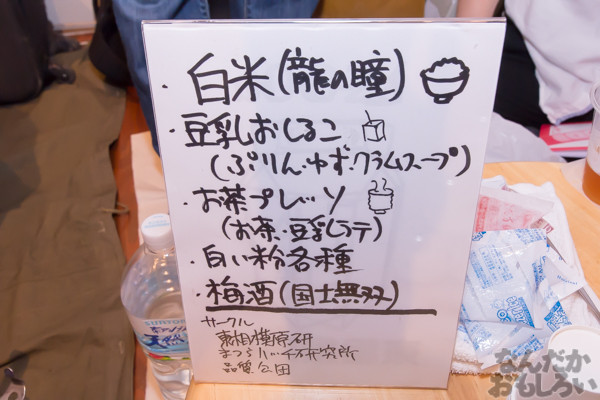 ・白米(龍の瞳)
・豆乳おしるこ
(ぷりん・ゆず・クラムスープ)
・お茶プレッソ
(お茶・豆乳ラテ)
・白い粉各種
・梅酒(国士無双)
サークル
東相模原研
品質公田
SUNTORY
天然
なんだか
おもしろい